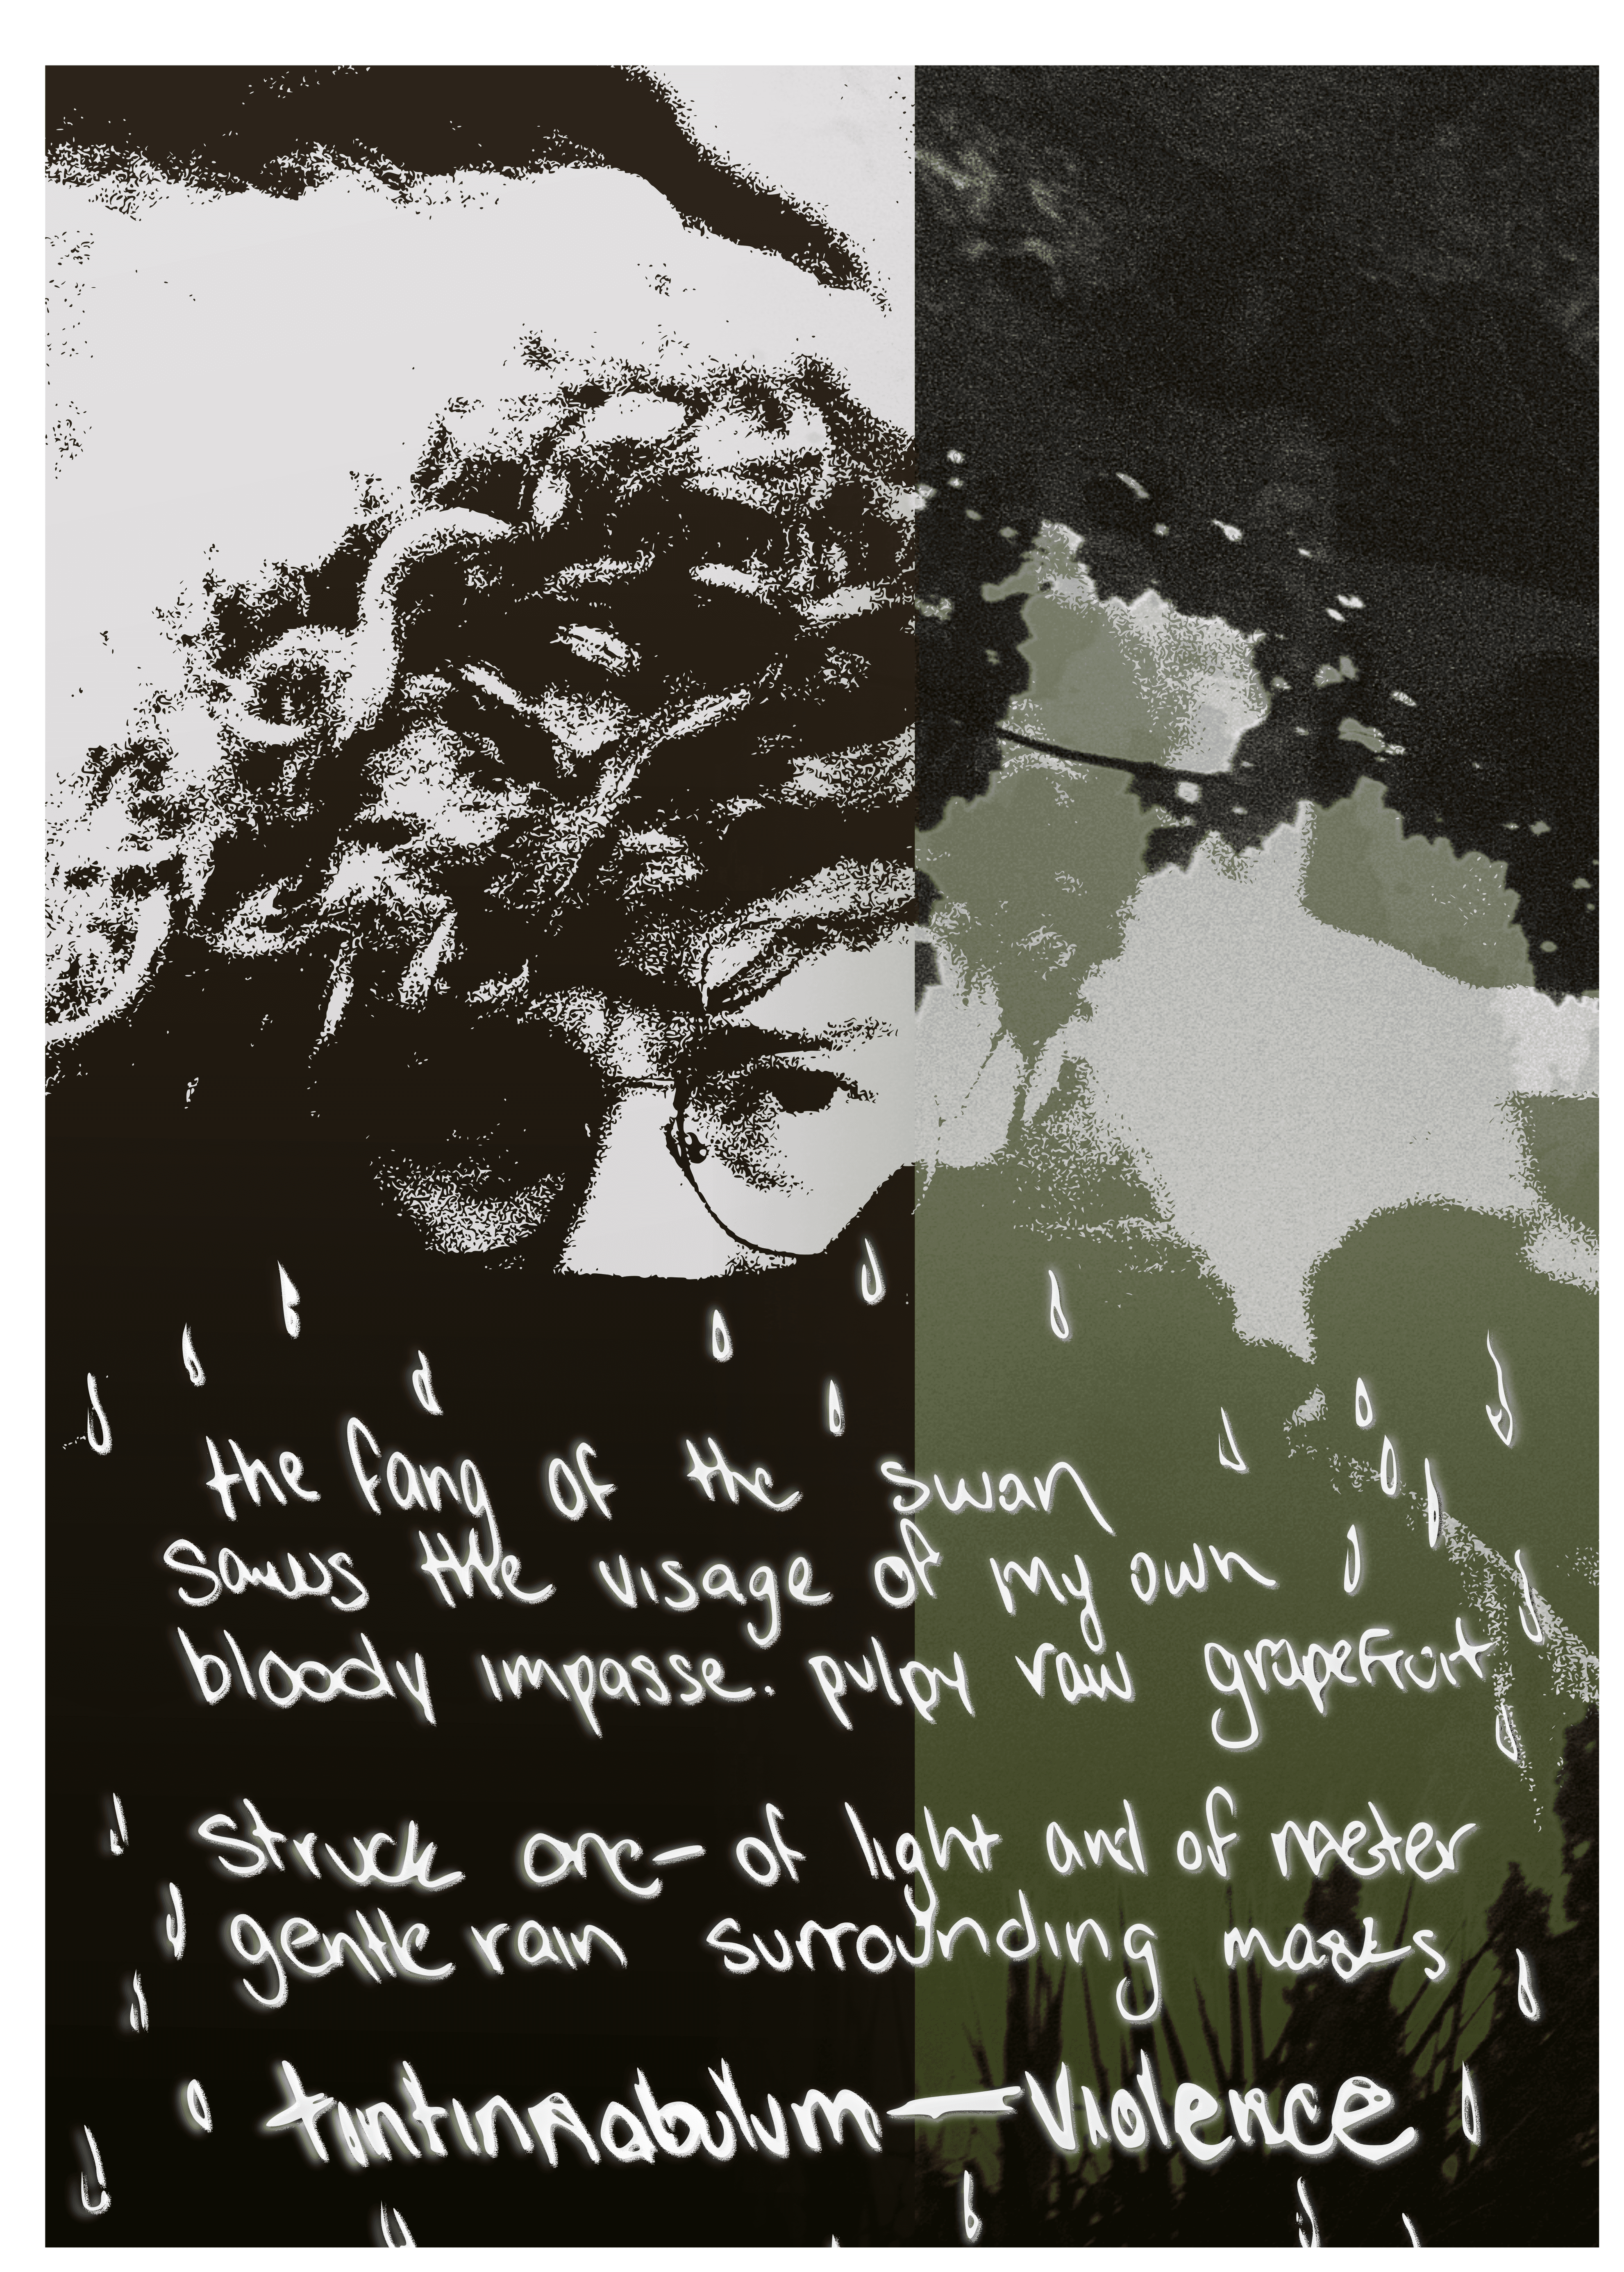 the fang of the swan
saws the visage of my own
bloody impasse. pulpy raw grapefruit
struck one— of light and of meter
gentle rain surrounding masks
tintinnabulum—violence